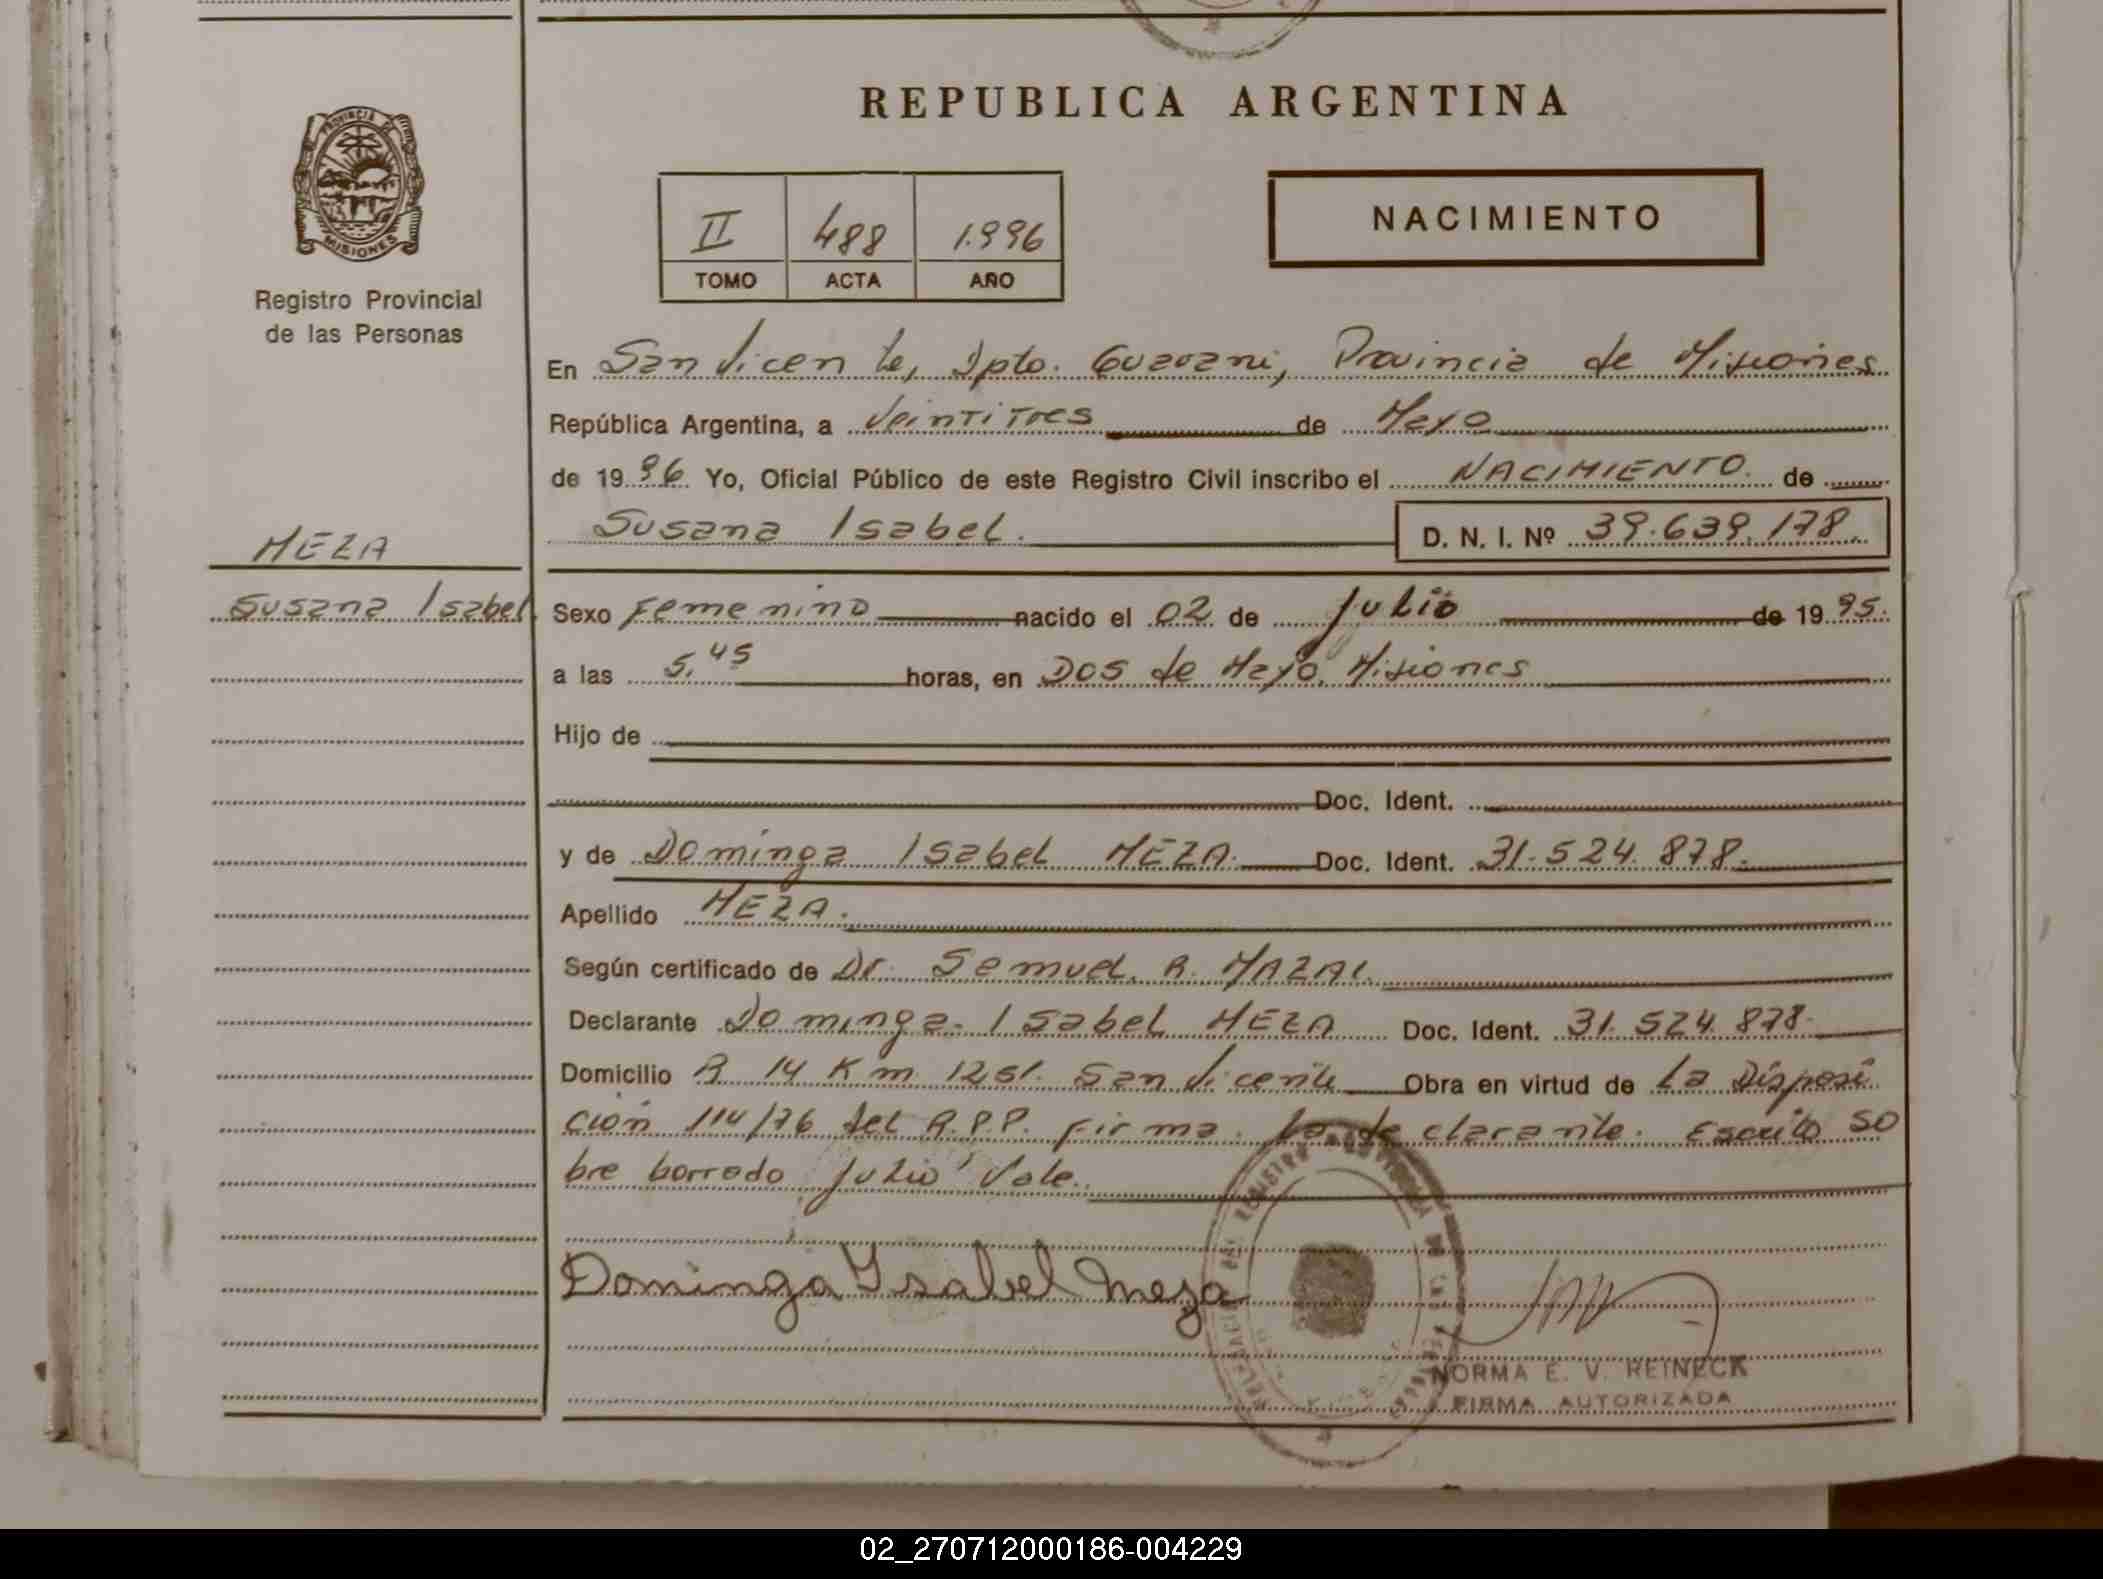 REPUBLICA ARGENTINA
PROVINCIA DE
MISIONES
Registro Provincial
de las Personas
II 488 1.996
TOMO ACTA AÑO
NACIMIENTO
En San Vicente, Dpto. Guarani, Provincia de Misiones
República Argentina, a Veintitres de Mayo
de 1996 Yo, Oficial Público de este Registro Civil inscribo el NACIMIENTO. de
Susana Isabel. D. N. I. Nº 39.639.178.
MEZA
Susana Isabel
Sexo Femenino nacido el 02 de Julio de 1995.
a las 5,45 horas, en Dos de Mayo, Misiones
Hijo de
Doc. Ident.
y de Dominga Isabel MEZA. Doc. Ident. 31.524.878.
Apellido MEZA.
Según certificado de Dr. Samuel. R. MAZAL.
Declarante Dominga. Isabel MEZA Doc. Ident. 31.524.878.
Domicilio R 14 Km San Vicente Obra en virtud de La Disposi
ción 114/76 del R.P.P. Firma la declarante. Escrito so
bre borrado Julio Vale.
Dominga Ysabel Meza
NORMA E. V. REINECK
FIRMA AUTORIZADA
02_270712000186-004229